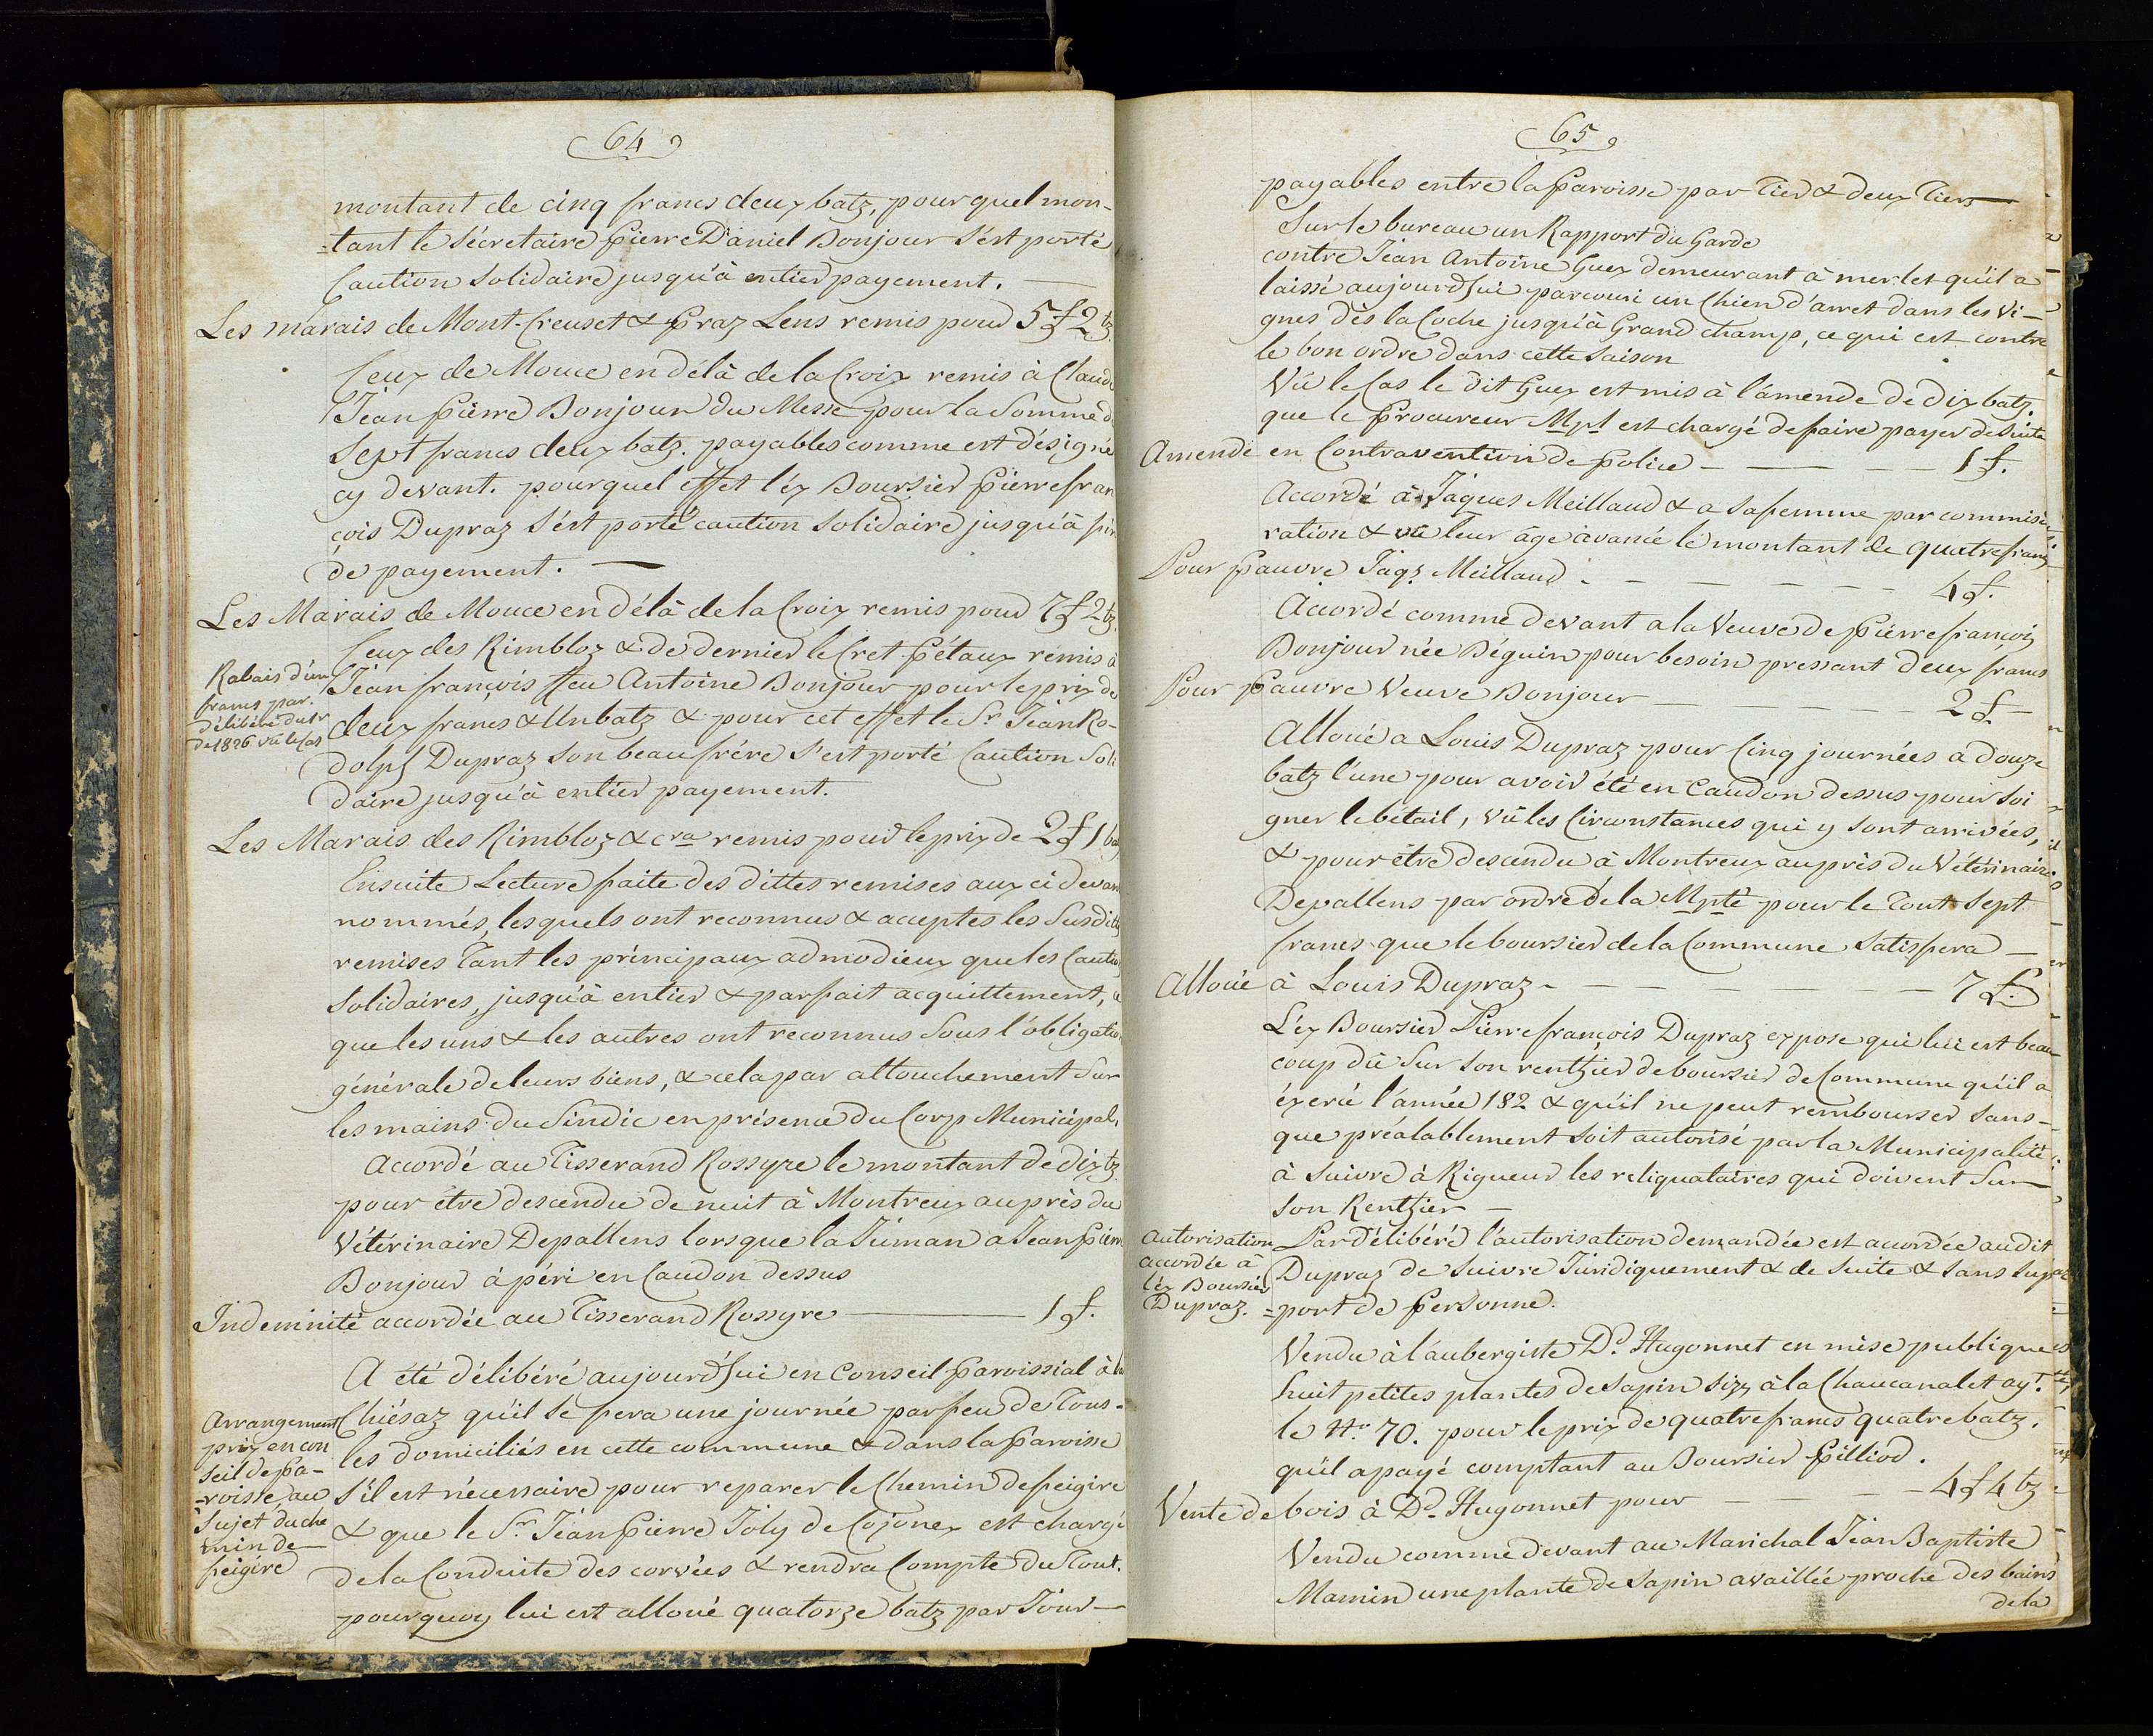 64
montant de cinq francs deux batz, pour quel mon-
=tant le sécretaire Pierre Daniel Bonjour s'est porté
Caution Solidaire jusqu'à entier payement. —
Les marais de Mont-Creuset & Praz Lens remis pour 5 f 2 bz.
Ceux de Mouce en délà de la Croix remis à Claude
Jean Pierre Bonjour du Messe pour la Somme de
Sept francs deux batz. payables comme est désigné
cy devant. pour quel effet l'éx Boursier Pierre fran
çois Dupraz s'ést porté caution solidaire jusqu'à fin
de payement. —
Les Marais de Mouce en délà de la Croix remis pour 7 f 2 bz.
Ceux des Rimbloz & de dernier le Cret Pétaux remis à
Rabais d'un
francs par
délibéré du
de 1826 vû le Cas
Jean françois ffeu Antoine Bonjour pour le prix de
deux francs & Un batz & pour cet effet le Sr Jean Ro-
dolph Dupraz son beau frére s'est porté Caution Soli
daire jusqu'à entier payement.
Les Marais des Rimbloz & cra remis pour le prix de 2 f 1 bz
Ensuite Lecture faite des dittes remises aux ci devant
nommés, lesquels ont reconnus & acceptes les Susdittes
remises tant les principaux admodieux que les Cautions
Solidaires, jusqu'à entier & parfait acquittement, ce
que les uns & les autres ont reconnus Sous l'obligation
générale de leurs biens, & cela par attouchement Sur
les mains du Sindic en présence du Corp Municipal,
Accordé au Tisserand Rossyre le montant de dix bz
pour être descendu de nuit à Montreux auprès du
Vétérinaire Depallens lorsque la Juman a Jean Pierre
Bonjour à péri en Caudon dessus
Indemnité accordée au Tisserand Rossyre — 1 f.
A été délibéré aujourd'hui en Conseil Paroissial à la
Arrangement
prix en con
seil de Pa-
-roisse, au
Sujet du che
min de
feigire
Chiésaz qu'il se fera une journée par feu de Tous-
les domiciliés en cette commune & dans la Paroisse
s'il est nécessaire pour reparer le Chemin de feigire
& que le Sr. Jean Pierre Joly de Cojonex est chargé
de la Conduite des corvées & rendra Compte du Tout.
pourquoy lui est alloué quatorze batz par Jour —
65
payables entre la Paroisse par Tier & deux Tiers —
Sur le bureau un Rapport du Garde
contre Jean Antoine Guex demeurant à merlet qu'il a
laissé aujourd'hui parcouri un Chien d'arret dans les Vi-
gnes dès la Coche jusqu'à Grand champ, ce qui est contre
le bon ordre dans cette Saison
Vû le Cas le dit Guex est mis à l'amende de dix batz.
que le Procureur Mpl est chargé de faire payer de Suite
Amende en Contravention de Police — — — 1 f.
Accordé à Jaques Meillaud & a sa femme par commisé
ration & vû leur âge àvancé le montant de quatre francs
Pour Pauvre Jaqs Meillaud — — — 4 f.
Accordé comme devant a la Veuve de Pierre françois
Bonjour née Béguin pour besoin pressant deux francs
Pour Pauvre Veuve Bonjour — — — 2 f. —
Alloué a Louis Dupraz pour Cinq journées a douze
batz l'une pour avoir été en Caudon dessus pour Soi
gner le bétail, vû les Circonstances qui y sont arrivées,
& pour être descendu à Montreux auprès du Vétérinaire
Depallens par ordre de la Mpté pour le Tout Sept
francs que le boursier de la Commune Satisfera —
Alloué à Louis Dupraz — — — 7 f.
L'éx Boursier Pierre françois Dupraz expose qui lui est beau-
coup dû Sur son renthier de boursier de Commune qu'il a
éxercé l'année 182 & qu'il ne peut rembourser sans-
que préalablement soit autorisé par la Municipalité
à Suivre à Rigueur les reliquataires qui doivent Sur
son Renthier —
Autorisation
accordée à
l'éx Boursier
Dupraz.
Par délibéré l'autorisation demandée est accordée au dit
Dupraz de Suivre Juridiquement & de Suite & sans sup
=port de Personne.
Vendu à l'aubergiste Dd. Hugonnet en mise publique
huit petites plantes de Sapin sizz à la Chaucanalet ayt.
le No. 70. pour le prix de quatre francs quatre batz.
qu'il a payé comptant au Boursier Pilliod.
Vente de bois à Dd. Hugonnet pour — — — 4 f 4 bz
Vendu comme devant au Marichal Jean Baptiste
Mamin une plante de Sapin availlée proche des bains
de la